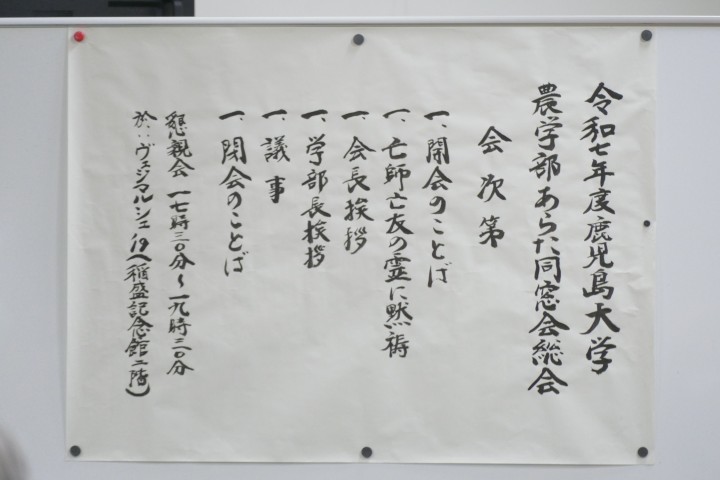 令和七年度鹿児島大学
農学部あらた同窓会総会
会次第
一、開会のことば
一、亡師亡友の霊に黙祷
一、会長挨拶
一、学部長挨拶
一、議事
一、閉会のことば
懇親会 一七時三〇分～一九時三〇分
於：ヴェジマルシェ19(稲盛記念館二階)